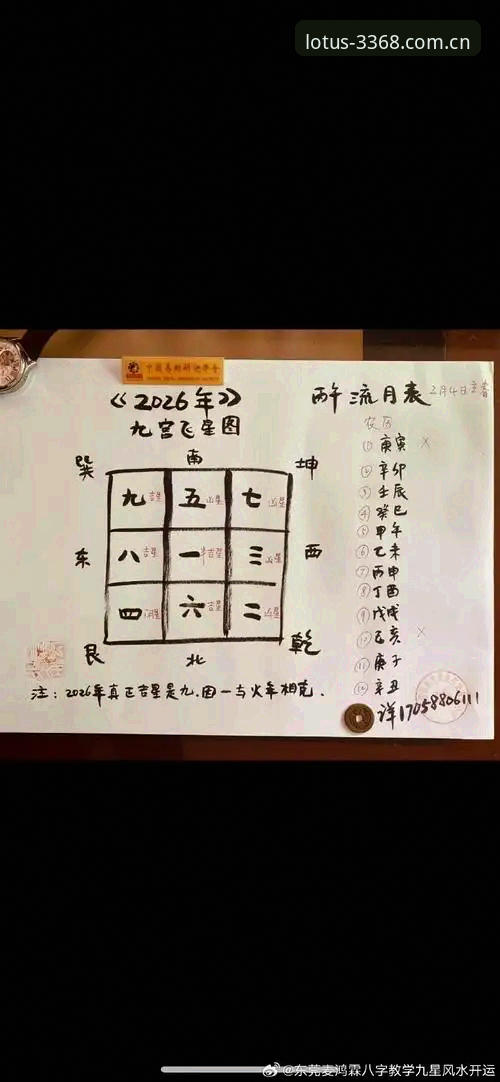 lotus-3368.com.cn
中国易经研究学会
《2026年》
九宫飞星图
丙午流月表 2月4日立春
农历
巽 南 坤
九吉星 五凶星 七凶星
东 八吉星 一半吉星 三凶星 西
四凶星 六吉星 二凶星
艮 北 乾
① 庚寅 ×
② 辛卯
③ 壬辰
④ 癸巳
⑤ 甲午
⑥ 乙未
⑦ 丙申
⑧ 丁酉
⑨ 戊戌
⑩ 乙亥 ×
⑪ 庚子
⑫ 辛丑
注：2026年真正吉星是九，因一与火年相克．
详17058806111
@东莞麦鸿霖八字教学九星风水开运